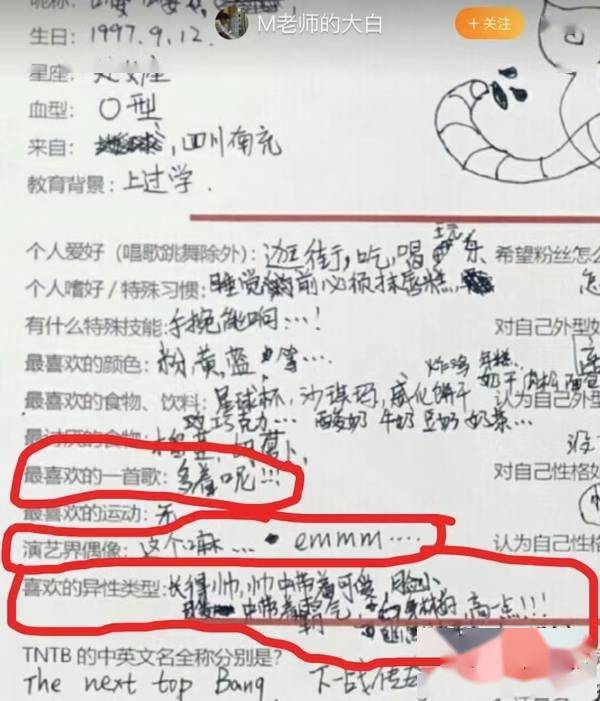 昵称:
M老师的大白
+关注
生日: 1997.9.12.
星座: 处女座
血型: O型
来自: 四川南充
教育背景: 上过学.
个人爱好（唱歌跳舞除外）: 逛街,吃,喝 玩 乐
希望粉丝怎么
个人嗜好/特殊习惯: 睡觉前必须抹唇膜,
有什么特殊技能: 手腕能响…!
对自己外型如
最喜欢的颜色: 粉,黄,蓝 等…
炸鸡
最喜欢的食物、饮料: 星球杯,沙琪玛,威化饼干
认为自己外型
巧克力… 酸奶 牛奶 豆奶 奶茶…
最讨厌的食物:
最喜欢的一首歌: 多着呢!!!
对自己性格如
最喜欢的运动: 无
演艺界偶像: 这个嘛… emmm……
认为自己性格
喜欢的异性类型: 长得帅,帅中带着可爱,脸小
中带着霸气, 高一点!!!
TNTB的中英文名全称分别是?
The next top Bang 下一战传五